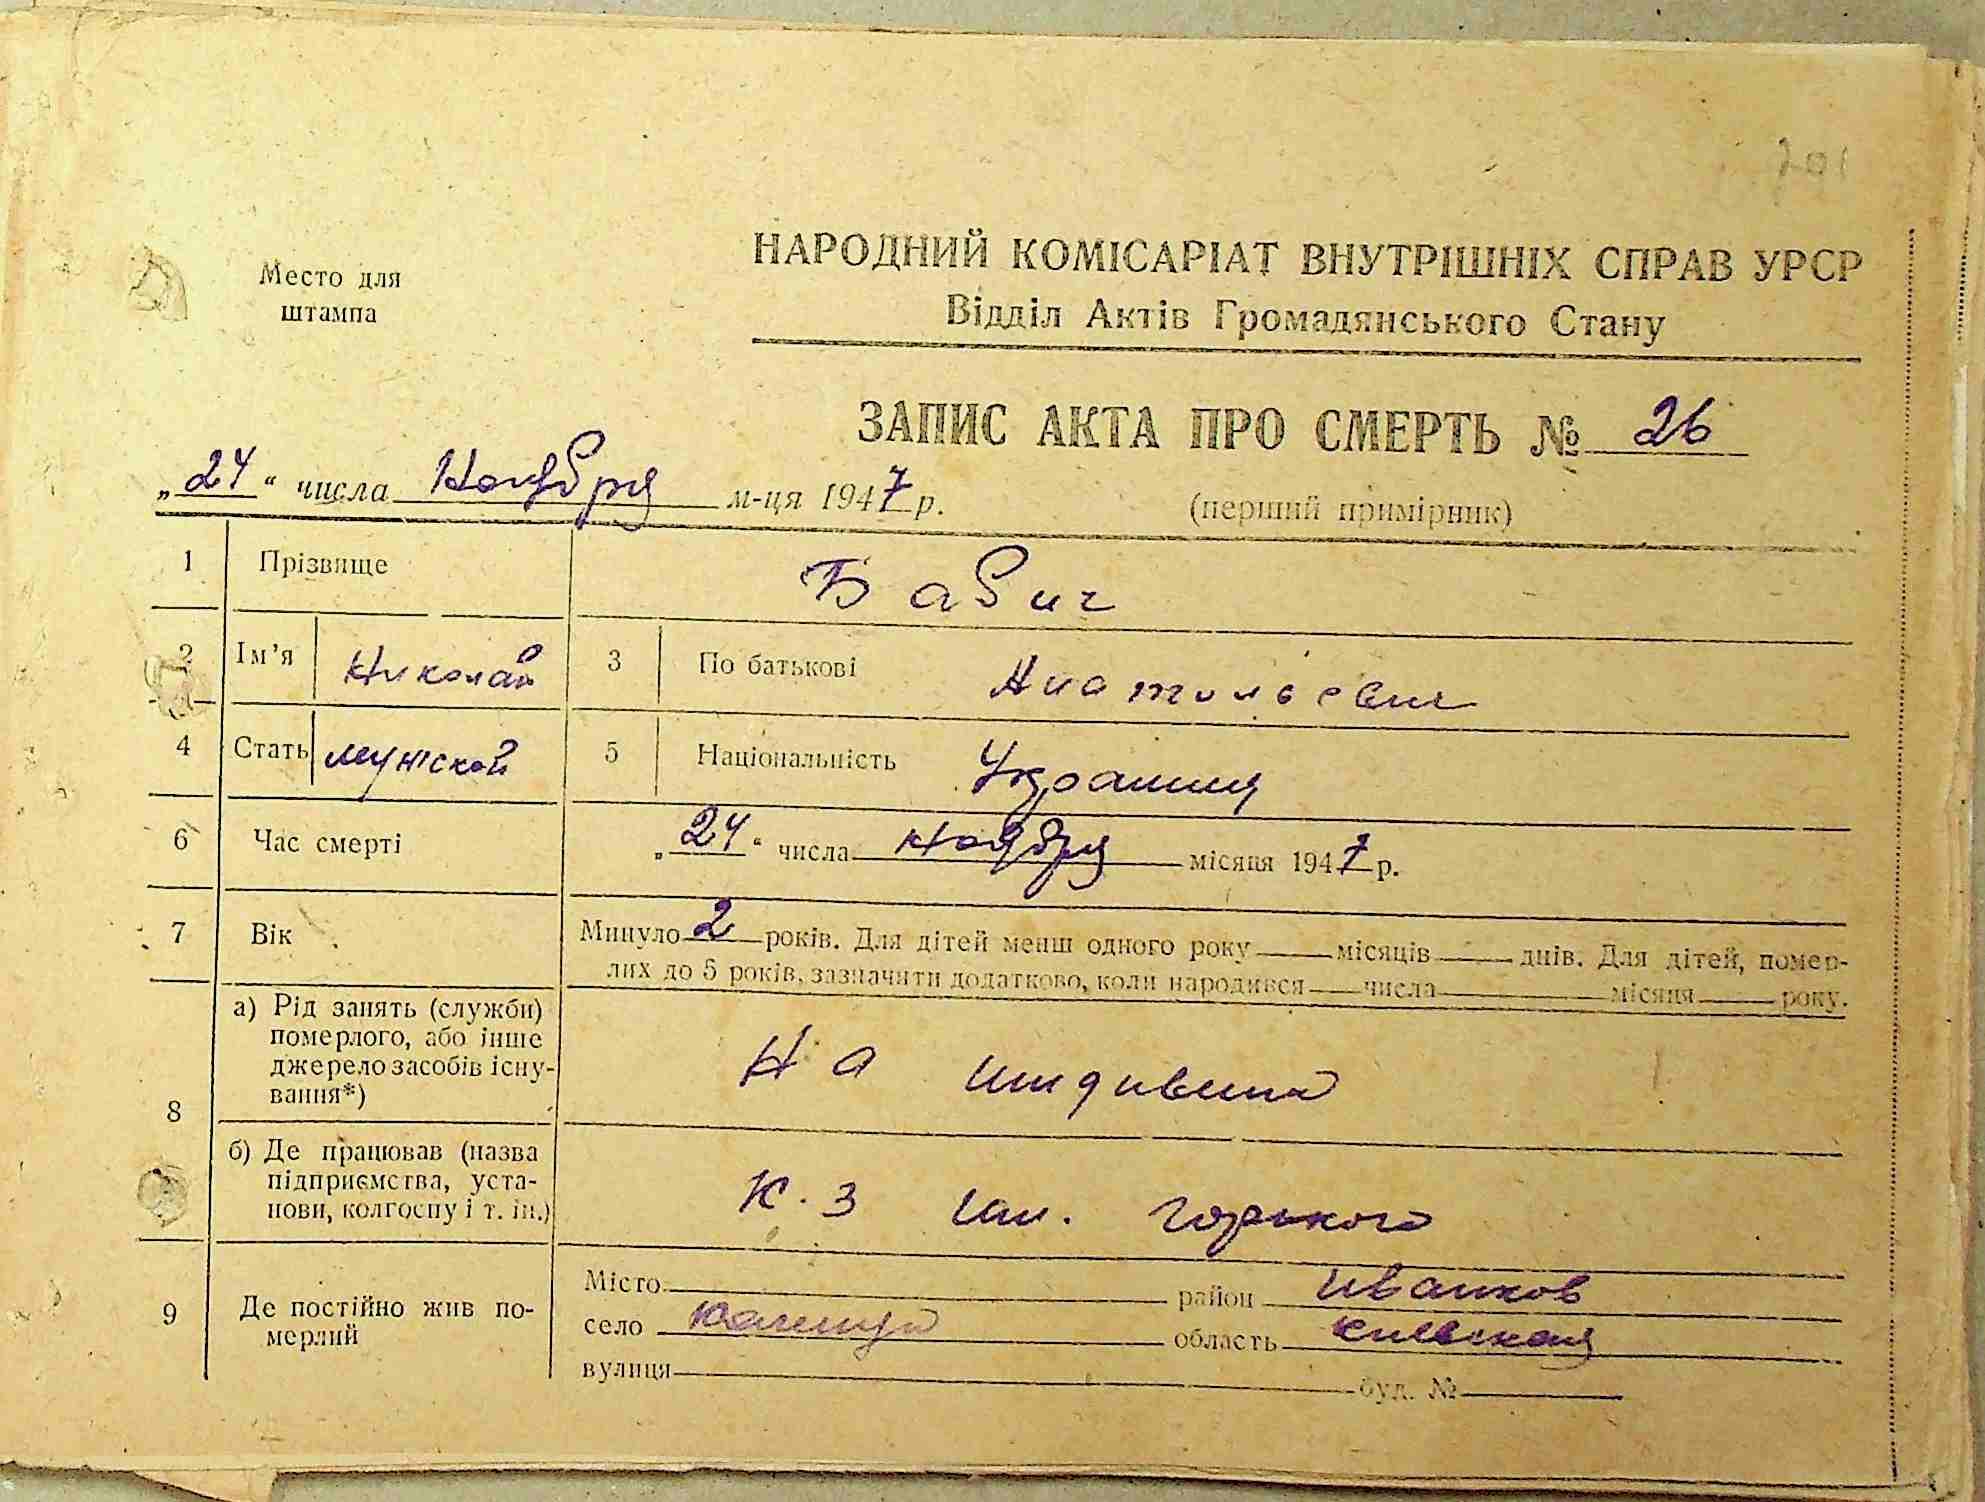 701
Место для
штампа
НАРОДНИЙ КОМІСАРІАТ ВНУТРІШНІХ СПРАВ УРСР
Відділ Актів Громадянського Стану
ЗАПИС АКТА ПРО СМЕРТЬ № 26
„24“ числа Ноября м-ця 1947 р.
(перший примірник)
1 Прізвище Бабич
2 Ім’я Николай 3 По батькові Анатольевич
4 Стать мужской 5 Національність Украинця
6 Час смерті „24“ числа ноября місяця 1947 р.
7 Вік Минуло 2 років. Для дітей менш одного року місяців днів. Для дітей, помер-
лих до 5 років, зазначити додатково, коли народився числа місяця року.
8 а) Рід занять (служби)
померлого, або інше
джерело засобів існу-
вання*)
На иждивении
б) Де працював (назва
підприємства, уста-
нови, колгоспу і т. ін.)
К.З им. Горького
9 Де постійно жив по-
мерлий
Місто район Иванков
село область Киевская
вулиця буд. №